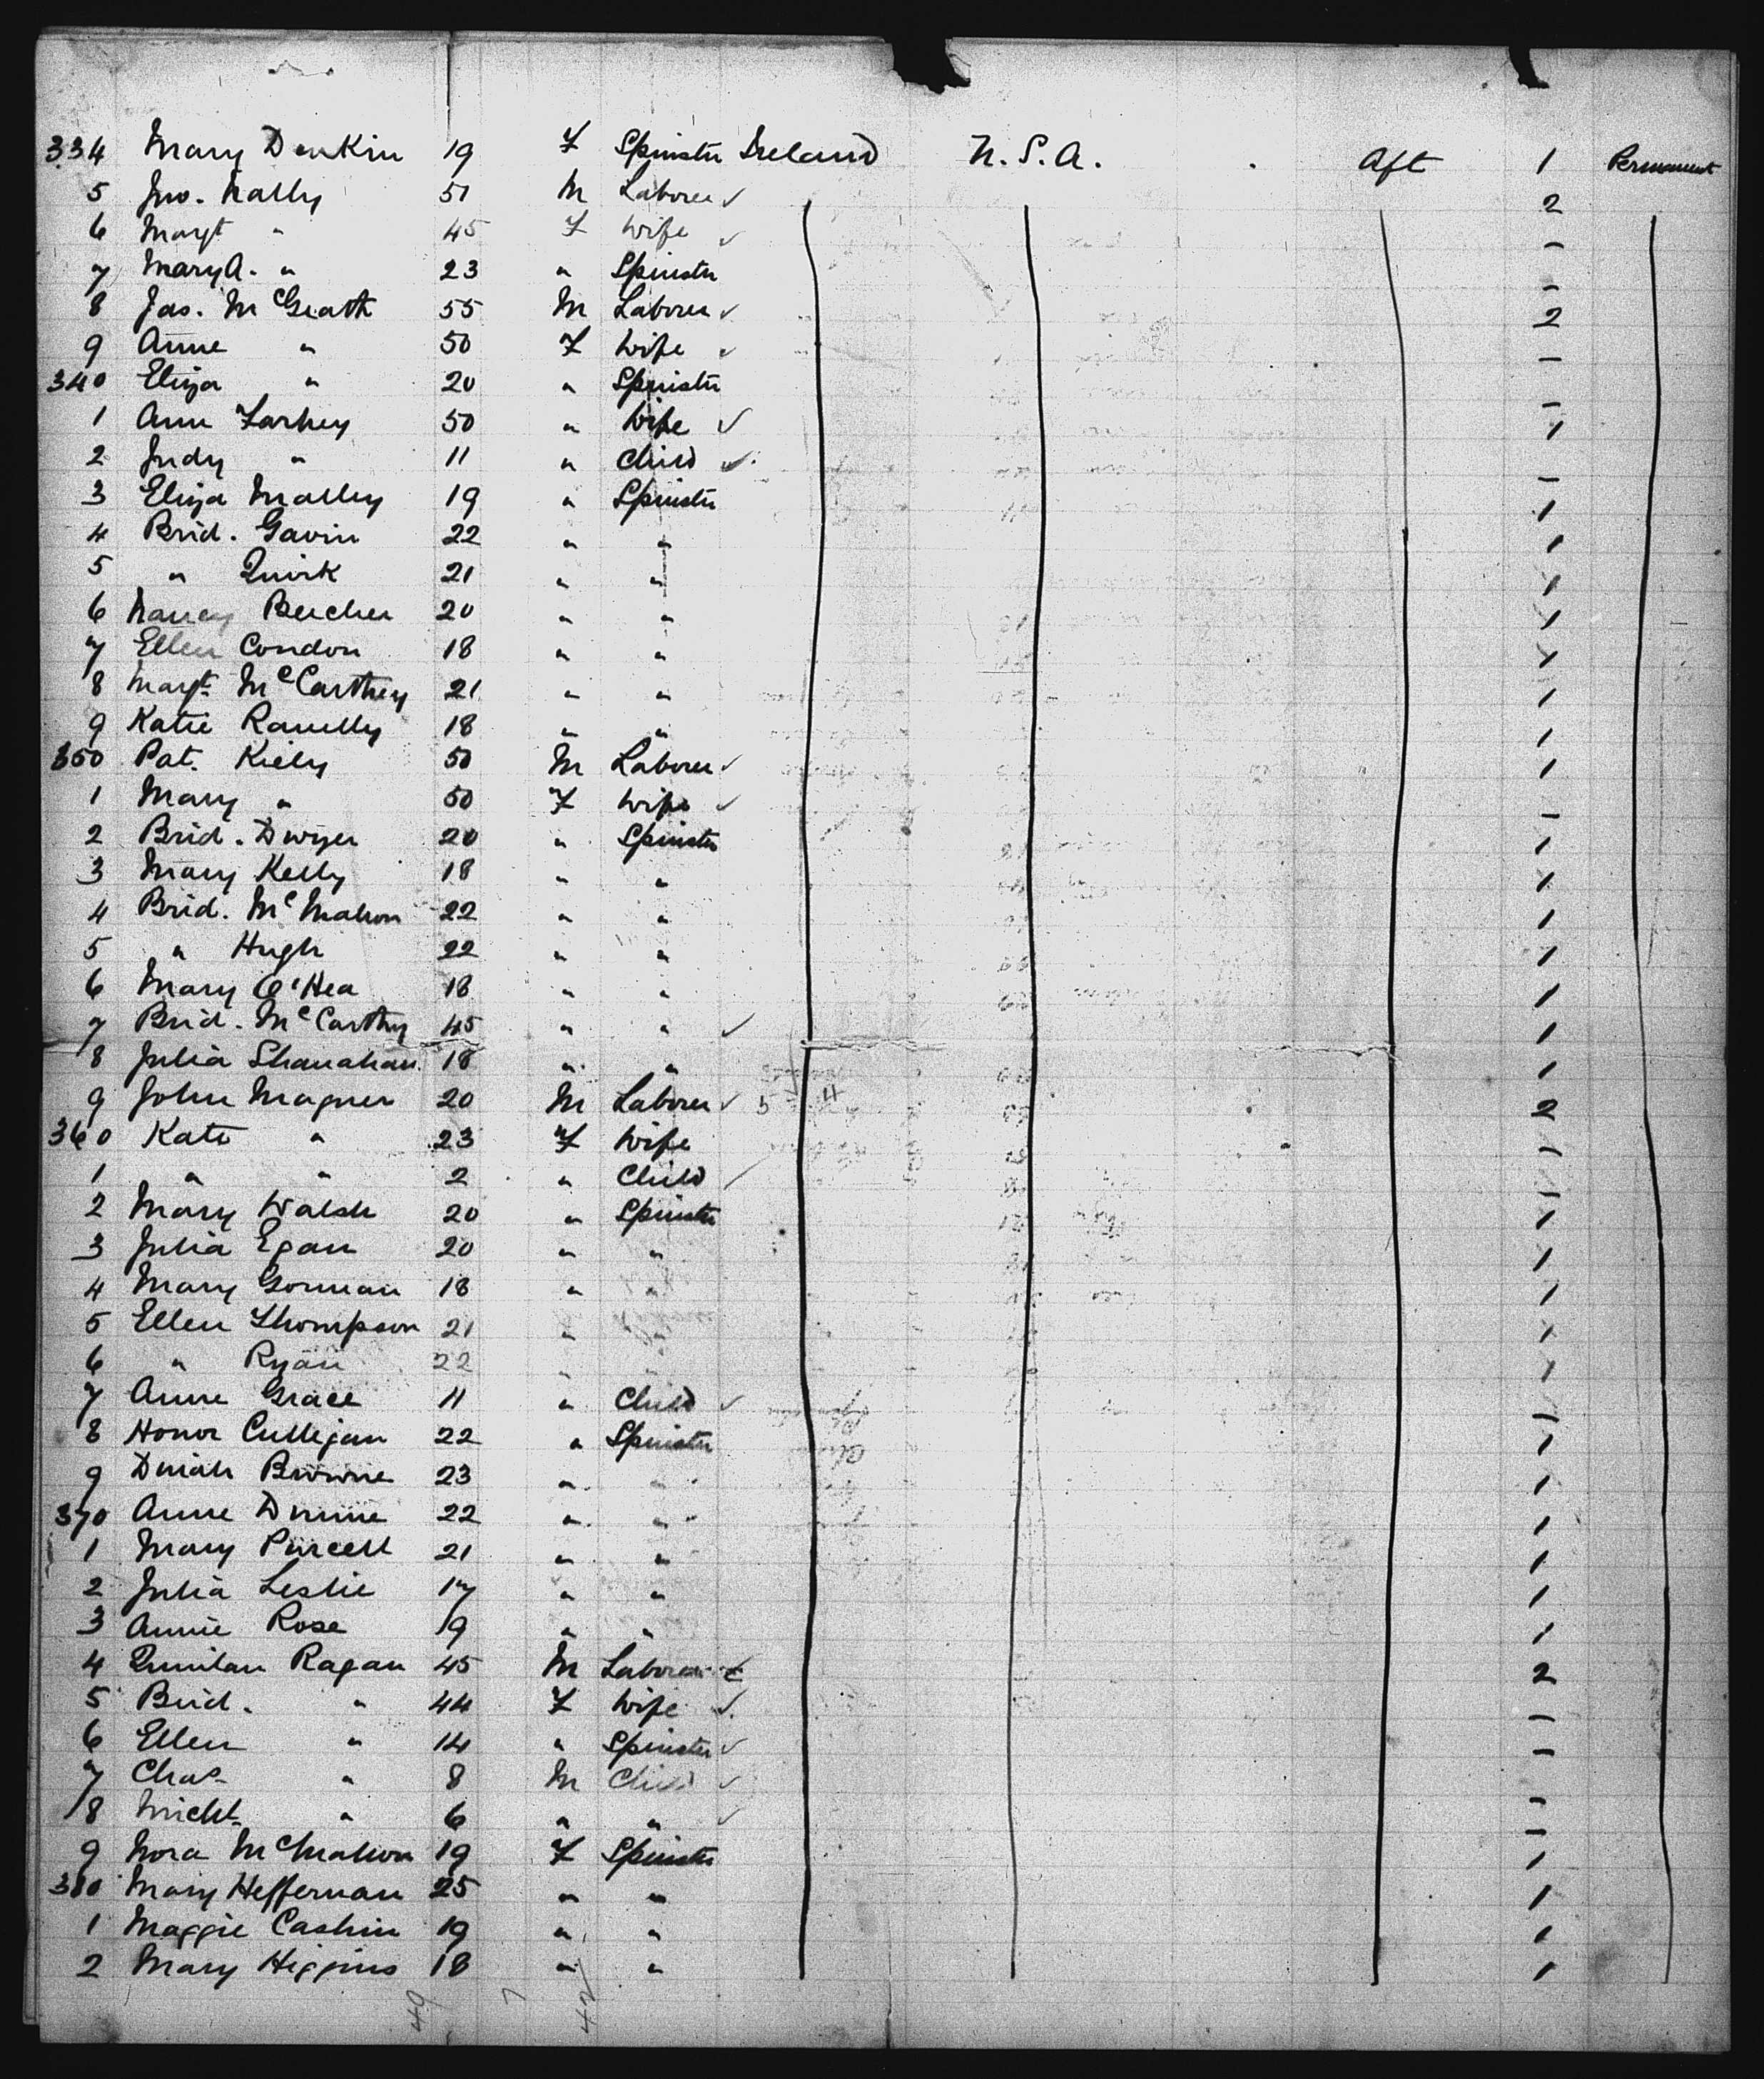 334 Mary Durkin 19 F Spinster Ireland U.S.A. Aft 1 Permanent
5 Jno. Nally 51 M Laborer ✓ 2
6 Margt " 45 F Wife ✓ –
7 Mary A. " 23 " Spinster –
8 Jas. McGrath 55 M Laborer ✓ 2
9 Anne " 50 F Wife ✓ –
340 Eliza " 20 " Spinster –
1 Ann Larkey 50 " Wife ✓ 1
2 Judy " 11 " Child ✓ –
3 Eliza Malley 19 " Spinster 1
4 Brid. Gavin 22 " " 1
5 " Quirk 21 " " 1
6 Nancy 20 " " 1
7 Ellen Condon 18 " " 1
8 Margt. McCarthey 21 " " 1
9 Katie 18 " " 1
350 Pat. Kiely 50 M Laborer ✓ 1
1 Mary " 50 F Wife ✓ –
2 Brid. Dwyer 20 " Spinster 1
3 Mary Kelly 18 " " 1
4 Brid. McMahon 22 " " 1
5 " Hugh 22 " " 1
6 Mary O'Hea 18 " " 1
7 Brid. McCarthy 45 " " ✓ 1
8 Julia Shanahan 18 " " 1
9 John Magner 20 M Laborer ✓ 2
360 Kate " 23 F Wife –
1 " " 2 " Child ✓ –
2 Mary Walsh 20 " Spinster 1
3 Julia Egan 20 " " 1
4 Mary Gorman 18 " " 1
5 Ellen Thompson 21 " " 1
6 " Ryan 22 " " 1
7 Anne Grace 11 " Child ✓ –
8 Honor Culligan 22 " Spinster 1
9 Dinah Browne 23 " " 1
370 Anne Dunne 22 " " 1
1 Mary Purcell 21 " " 1
2 Julia Leslie 17 " " 1
3 Annie Rose 19 " " 1
4 Quinlan Ragan 45 M Laborer ✓ 2
5 Brid. " 44 F Wife ✓ –
6 Ellen " 14 " Spinster ✓ –
7 Chas " 8 M Child ✓ –
8 Michl. " 6 " " ✓ –
9 Nora McMahon 19 F Spinster 1
380 Mary Heffernan 25 " " 1
1 Maggie Cashin 19 " " 1
2 Mary Higgins 18 " " 1
49 7 42